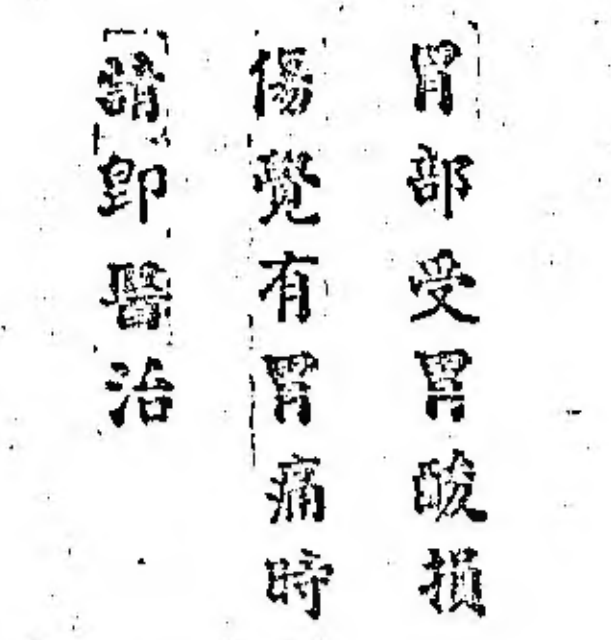 胃部受胃酸損
傷覺有胃痛時
請即醫治